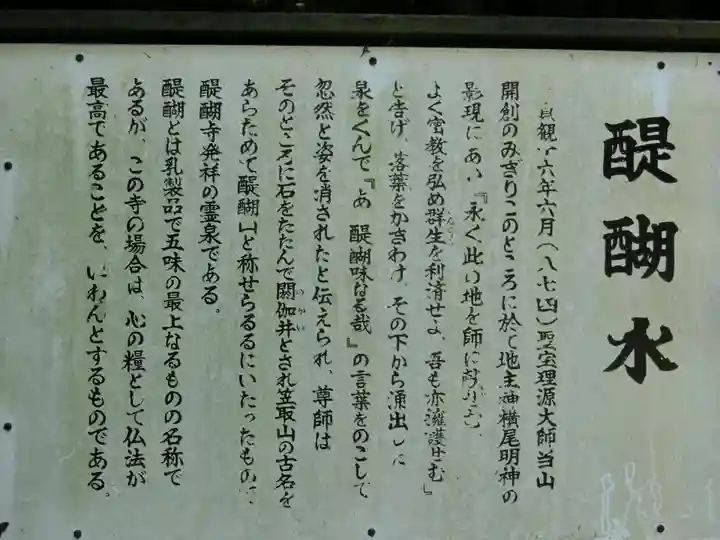 醍醐水
貞観十六年六月(八七四)聖宝理源大師当山
開創のみぎりこのところに於て地主神横尾明神の
影現にあい『永く此の地を師に献ぜむ、
よく密教を弘め群生を利済せよ、吾も亦擁護せむ』
と告げ、落葉をかきわけ、その下から涌出した
泉をくんで『あゝ醍醐味なる哉』の言葉をのこして
忽然と姿を消されたと伝えられ、尊師は
そのところに石をたたんで閼伽井とされ笠取山の古名を
あらためて醍醐山と称せらるるにいたったもので、
醍醐寺発祥の霊泉である。
醍醐とは乳製品で五味の最上なるものの名称で
あるが、この寺の場合は、心の糧として仏法が
最高であることを、いわんとするものである。